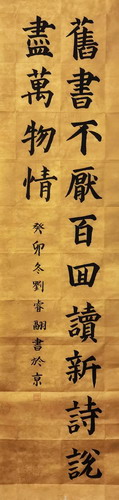 舊書不厭百回讀新詩說
盡萬物情
癸卯冬劉睿翮書於京